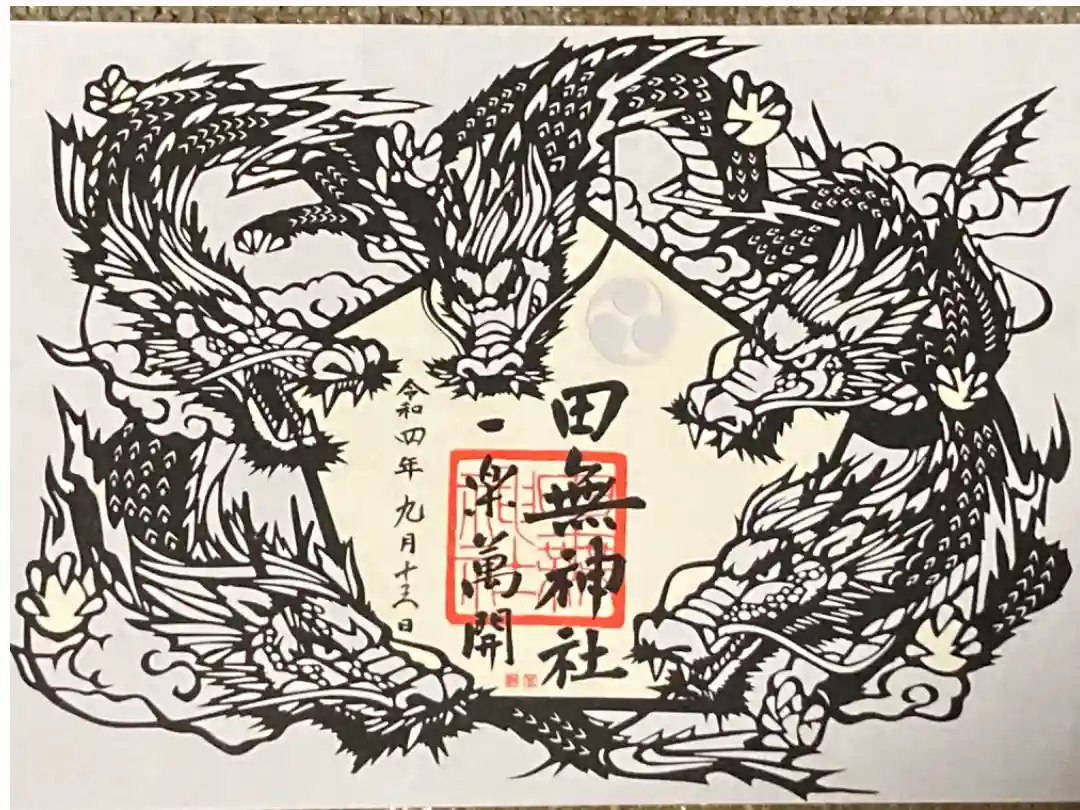 田無神社
一楽萬開
令和四年九月十六日